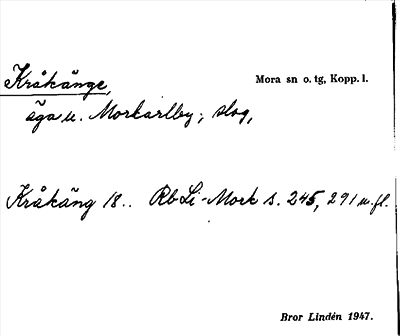 Kråkänge, Mora sn o. tg, Kopp. l.
äga u. Morkarlby; slog,
Kråkäng 18.. Rb Li-Mork s. 245, 291 m.fl.
Bror Lindén 1947.